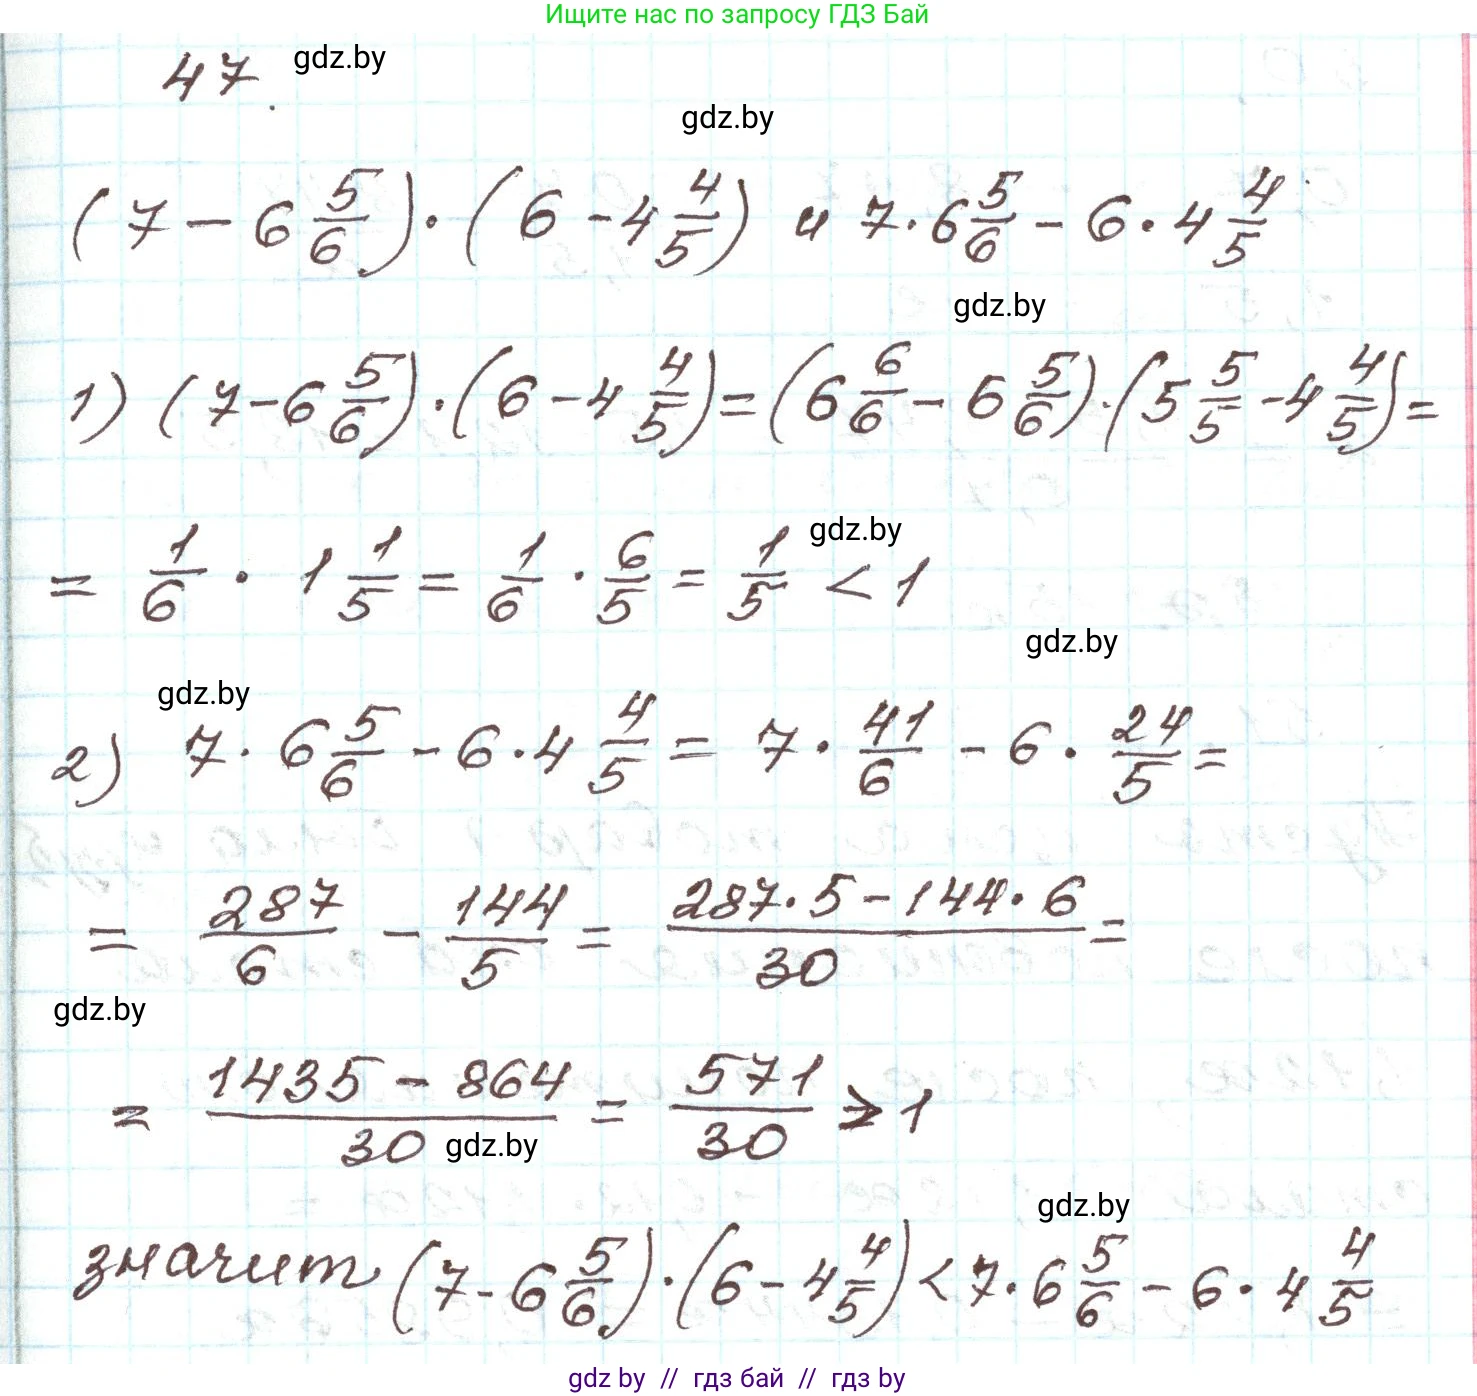 Ищите нас по запросу ГДЗ Бай
47. gdz.by
gdz.by
(7 − 6 5/6) · (6 − 4 4/5) и 7 · 6 5/6 − 6 · 4 4/5
gdz.by
1) (7 − 6 5/6) · (6 − 4 4/5) = (6 6/6 − 6 5/6) · (5 5/5 − 4 4/5) =
= 1/6 · 1 1/5 = 1/6 · 6/5 = 1/5 < 1 gdz.by
gdz.by
gdz.by
2) 7 · 6 5/6 − 6 · 4 4/5 = 7 · 41/6 − 6 · 24/5 =
= 287/6 − 144/5 = (287 · 5 − 144 · 6)/30 =
gdz.by
= (1435 − 864)/30 = 571/30 > 1
gdz.by
gdz.by
значит (7 − 6 5/6) · (6 − 4 4/5) < 7 · 6 5/6 − 6 · 4 4/5
gdz by // гдз бай // гдз by